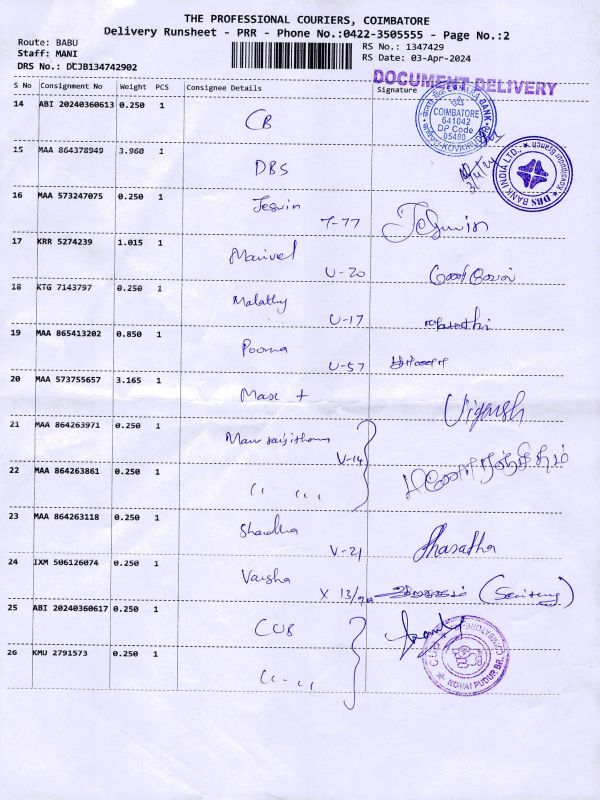 THE PROFESSIONAL COURIERS, COIMBATORE
Delivery Runsheet - PRR - Phone No.:0422-3505555 - Page No.:2
Route: BABU
Staff: MANI
DRS No.: DCJB134742902
RS No.: 1347429
RS Date: 03-Apr-2024
DOCUMENT DELIVERY
S No Consignment No Weight PCS Consignee Details Signature
14 ABI 20240360613 0.250 1 CB
COIMBATORE
641042
DP Code
05480
15 MAA 864378949 3.960 1 DBS
DBS BANK INDIA LTD.,
16 MAA 573247075 0.250 1 Jesvin T-77 Jeswin
17 KRR 5274239 1.015 1 Manivel U-20
18 KTG 7143797 0.250 1 Malathy U-17
19 MAA 865413202 0.850 1 Poorna U-57
20 MAA 573755657 3.165 1 Max + Vignesh
21 MAA 864263971 0.250 1 V-14
22 MAA 864263861 0.250 1 " "
23 MAA 864263118 0.250 1 Sharadha V-21 Sharatha
24 IXM 506126074 0.250 1 Varsha X 13/9A
25 ABI 20240360617 0.250 1 CUB
CUB COIMBATORE
KOVAI PUDUR BR.
26 KMU 2791573 0.250 1 " "